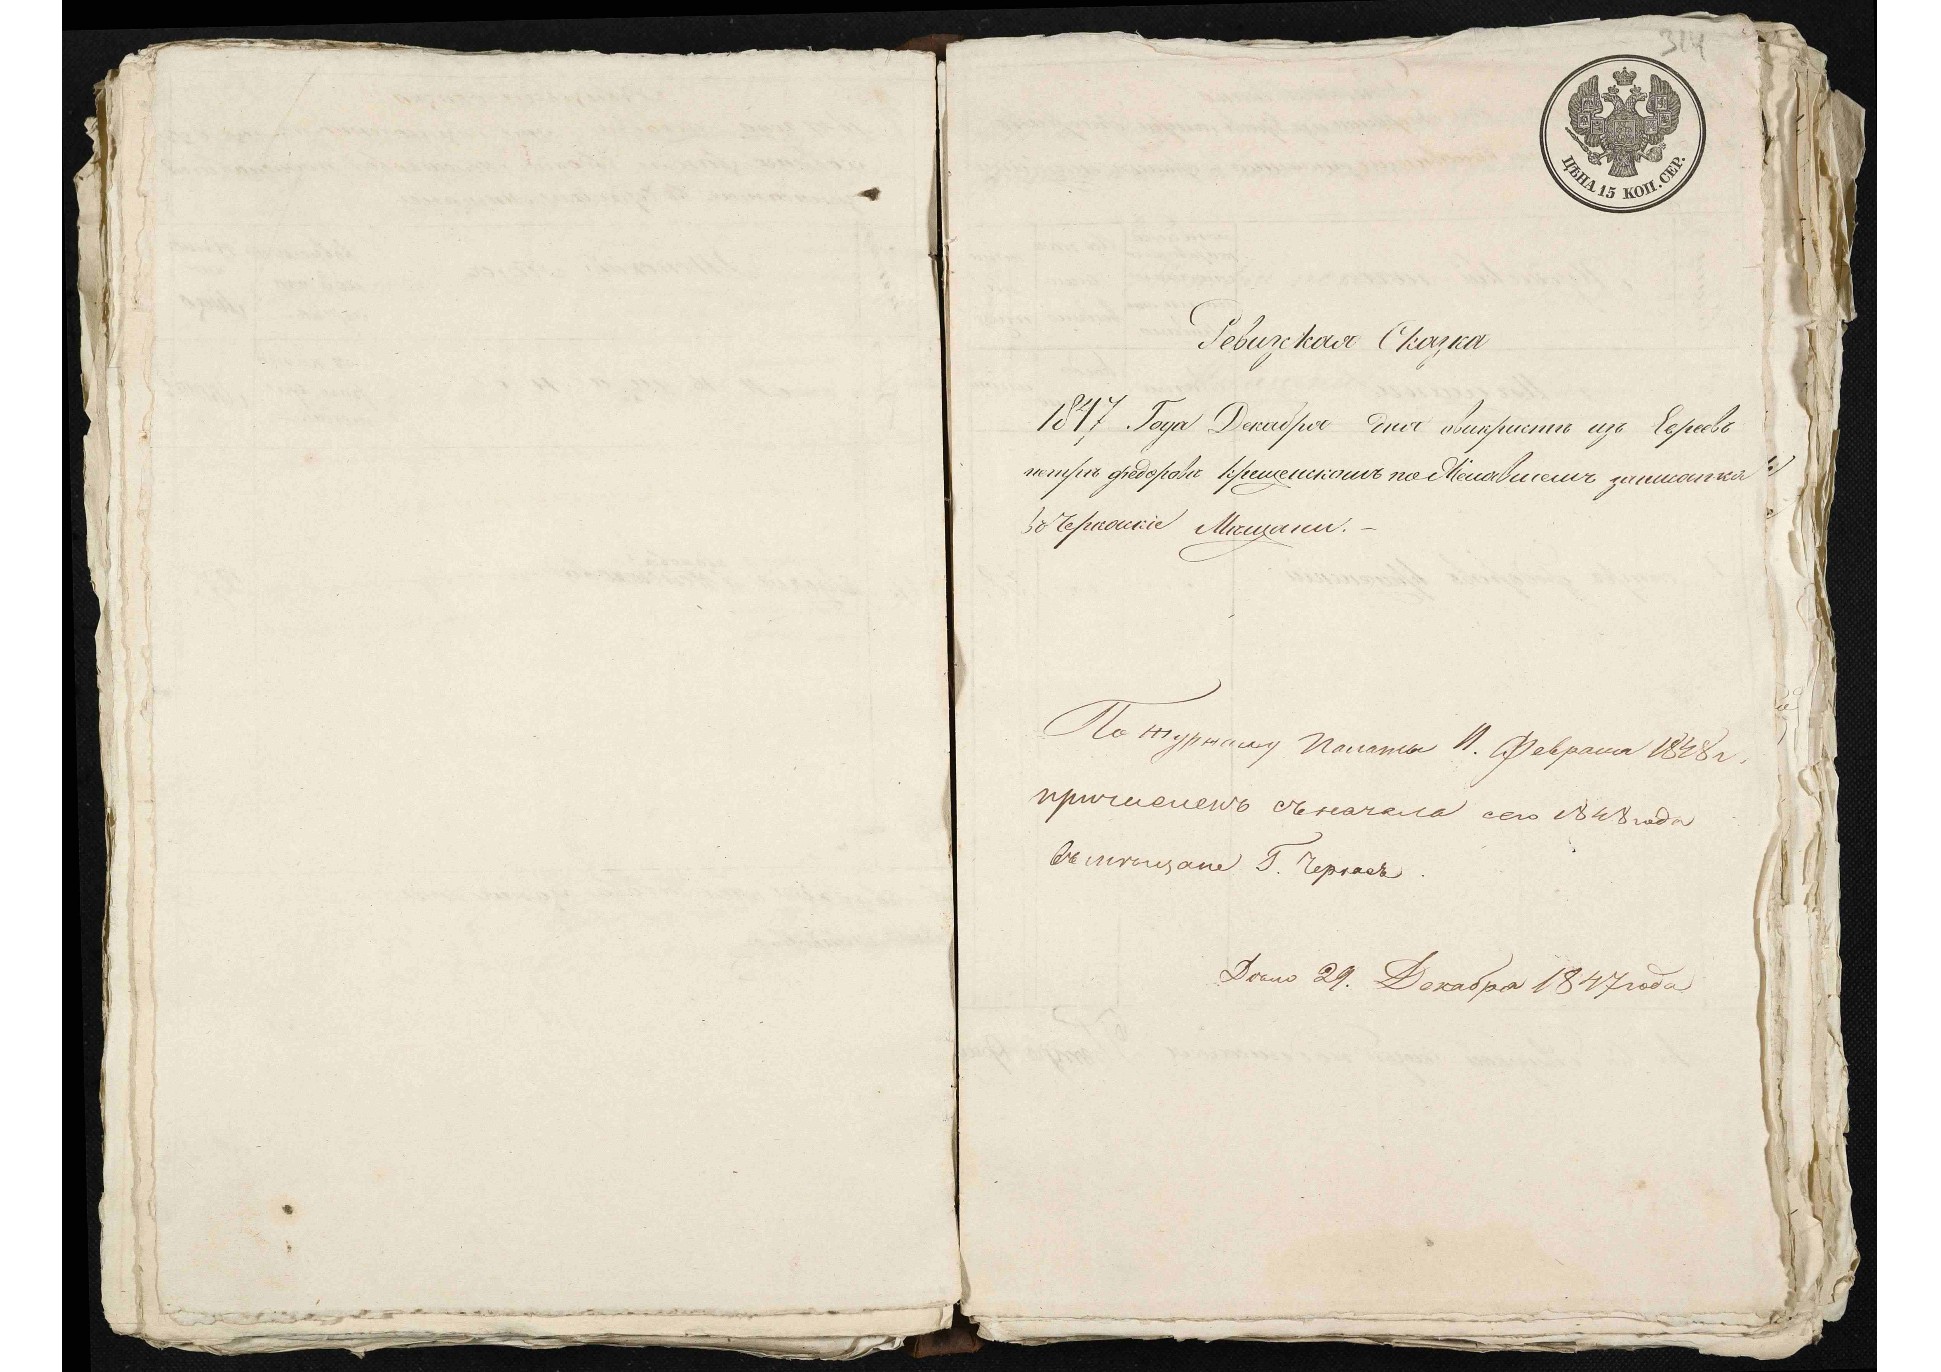 314
ЦѢНА 15 КОП. СЕР.
Ревизкая Сказка
1847 Года Декабря дня овикристѣ изъ Евреевъ
петрѣ федоровѣ Крещенскомъ по Желавшемъ записатка
въ Черкаские Мѣщани. –
По журналу Палаты 11. Февраля 1848 г.
причисленъ съ начала сего 1848 года
въ мѣщане Г. Черкасъ.
29. Декабря 1847 года